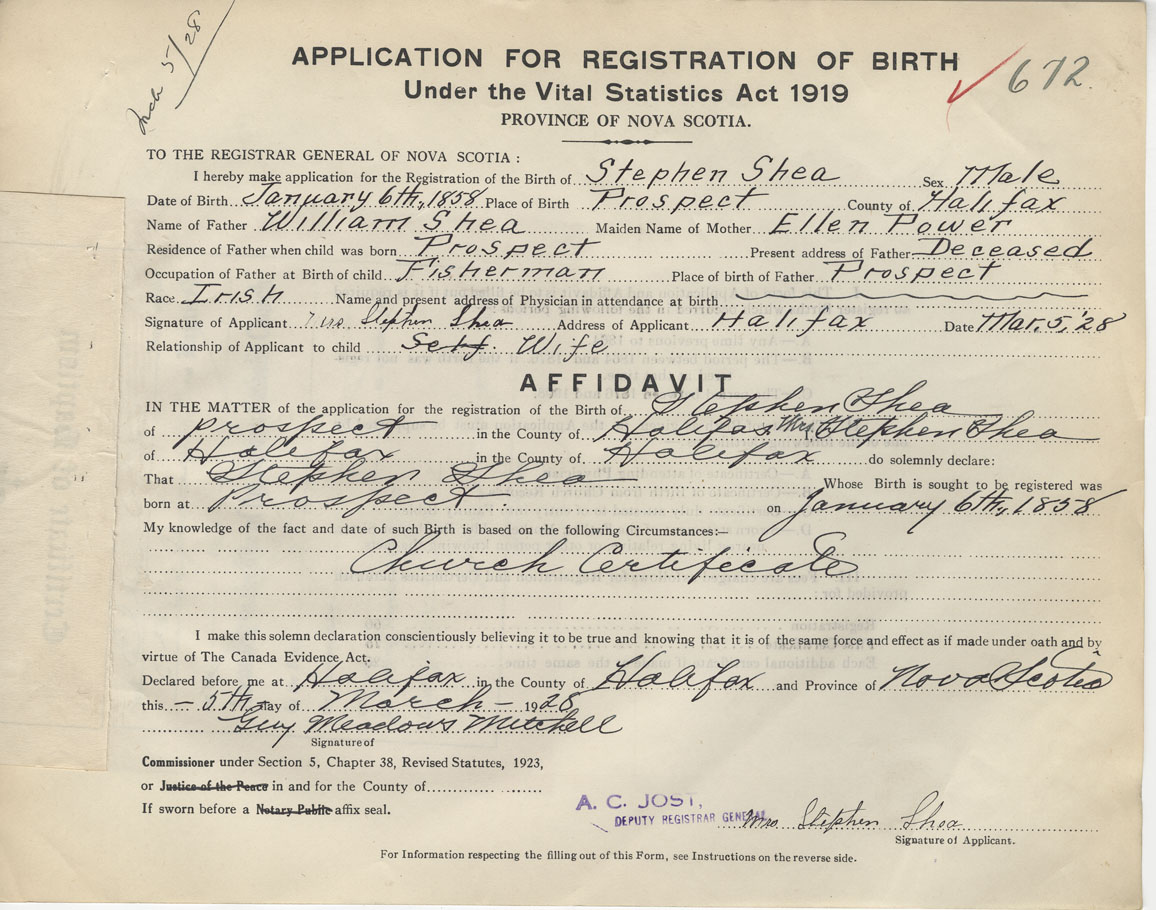 Mch 5/28
APPLICATION FOR REGISTRATION OF BIRTH
672
Under the Vital Statistics Act 1919
PROVINCE OF NOVA SCOTIA.
TO THE REGISTRAR GENERAL OF NOVA SCOTIA :
I hereby make application for the Registration of the Birth of Stephen Shea Sex Male
Date of Birth January 6th, 1858 Place of Birth Prospect County of Halifax
Name of Father William Shea Maiden Name of Mother Ellen Power
Residence of Father when child was born Prospect Present address of Father Deceased
Occupation of Father at Birth of child Fisherman Place of birth of Father Prospect
Race Irish Name and present address of Physician in attendance at birth
Signature of Applicant Mrs Stephen Shea Address of Applicant Halifax Date Mar. 5, '28
Relationship of Applicant to child Self. Wife
AFFIDAVIT
IN THE MATTER of the application for the registration of the Birth of Stephen Shea
of Prospect in the County of Halifax Mrs Stephen Shea
of Halifax in the County of Halifax do solemnly declare:
That Stephen Shea Whose Birth is sought to be registered was
born at Prospect. on January 6th, 1858
My knowledge of the fact and date of such Birth is based on the following Circumstances:—
Church Certificate
I make this solemn declaration conscientiously believing it to be true and knowing that it is of the same force and effect as if made under oath and by
virtue of The Canada Evidence Act.
Declared before me at Halifax in the County of Halifax and Province of Nova Scotia
this – 5th day of March – 1928
Guy Meadows Mitchell
Signature of
Commissioner under Section 5, Chapter 38, Revised Statutes, 1923,
or Justice of the Peace in and for the County of
If sworn before a Notary Public affix seal.
A. C. JOST,
DEPUTY REGISTRAR GENERAL
Mrs Stephen Shea
Signature of Applicant.
For Information respecting the filling out of this Form, see Instructions on the reverse side.